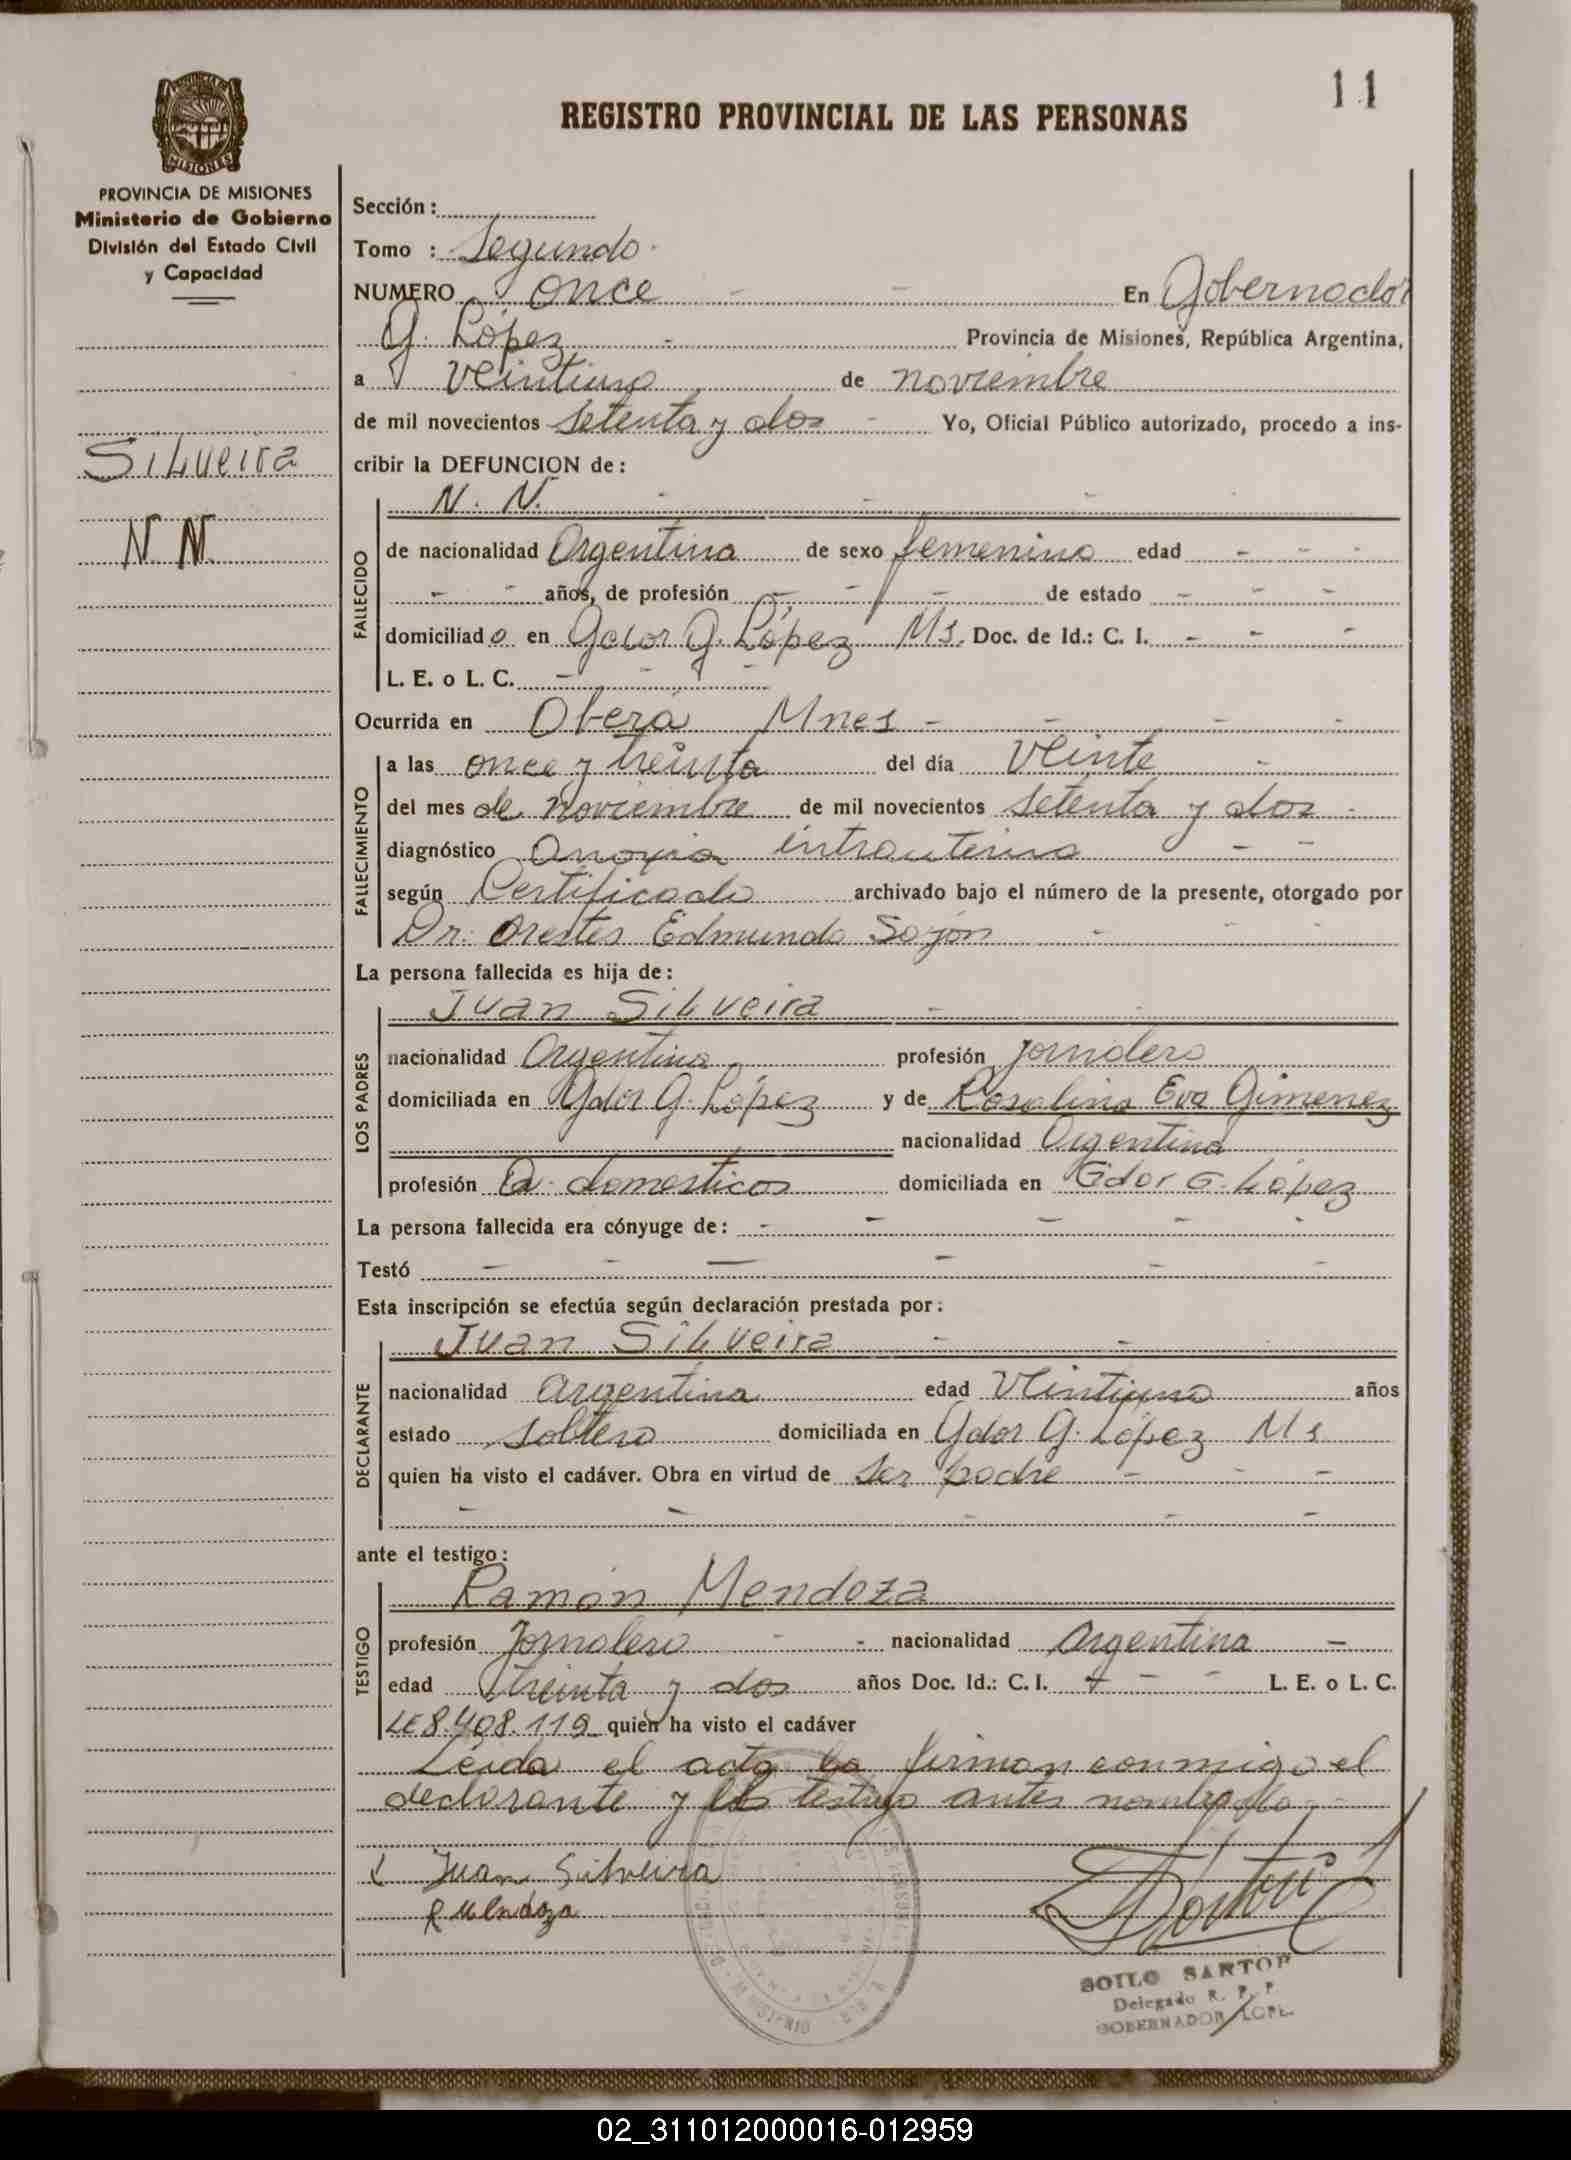 11
REGISTRO PROVINCIAL DE LAS PERSONAS
PROVINCIA DE MISIONES
Ministerio de Gobierno
División del Estado Civil
y Capacidad
Silveira
N. N.
Sección :
Tomo : Segundo
NUMERO once En Gobernador
G. López Provincia de Misiones, República Argentina,
a veintiuno de noviembre
de mil novecientos setenta y dos Yo, Oficial Público autorizado, procedo a ins-
cribir la DEFUNCION de :
N. N.
FALLECIDO
de nacionalidad Argentina de sexo femenino edad - - -
- - años, de profesión - - - de estado - - -
domiciliado en Gdor G. López Ms. Doc. de Id.: C. I. - - -
L. E. o L. C. - - -
Ocurrida en Oberá Mnes - - - -
FALLECIMIENTO
a las once y treinta del día Veinte -
del mes de noviembre de mil novecientos setenta y dos -
diagnóstico Anoxia intrauterina - -
según Certificado archivado bajo el número de la presente, otorgado por
Dr. Orestes Edmundo Sojón - - -
La persona fallecida es hija de :
LOS PADRES
Juan Silveira - -
nacionalidad Argentina profesión jornalero
domiciliada en Gdor G. López y de Rosalina Eva Gimenez
nacionalidad Argentina
profesión Q. domesticos domiciliada en Gdor G. López
La persona fallecida era cónyuge de : - - - - -
Testó - - - - - -
Esta inscripción se efectúa según declaración prestada por :
DECLARANTE
Juan Silveira - -
nacionalidad argentina edad Veintiuno años
estado soltero domiciliada en Gdor G. López Ms
quien ha visto el cadáver. Obra en virtud de ser padre - - -
- - - - -
ante el testigo :
TESTIGO
Ramón Mendoza
profesión Jornalero - - nacionalidad Argentina -
edad treinta y dos años Doc. Id.: C. I. - - - L. E. o L. C.
LE 8.408.119 quien ha visto el cadáver
Leida el acta la firman conmigo el
declarante y el testigo antes nombrado - -
Juan Silveira
R Mendoza
SOILO SARTOR
Delegado R. P. P.
GOBERNADOR LOPEZ
02_311012000016-012959